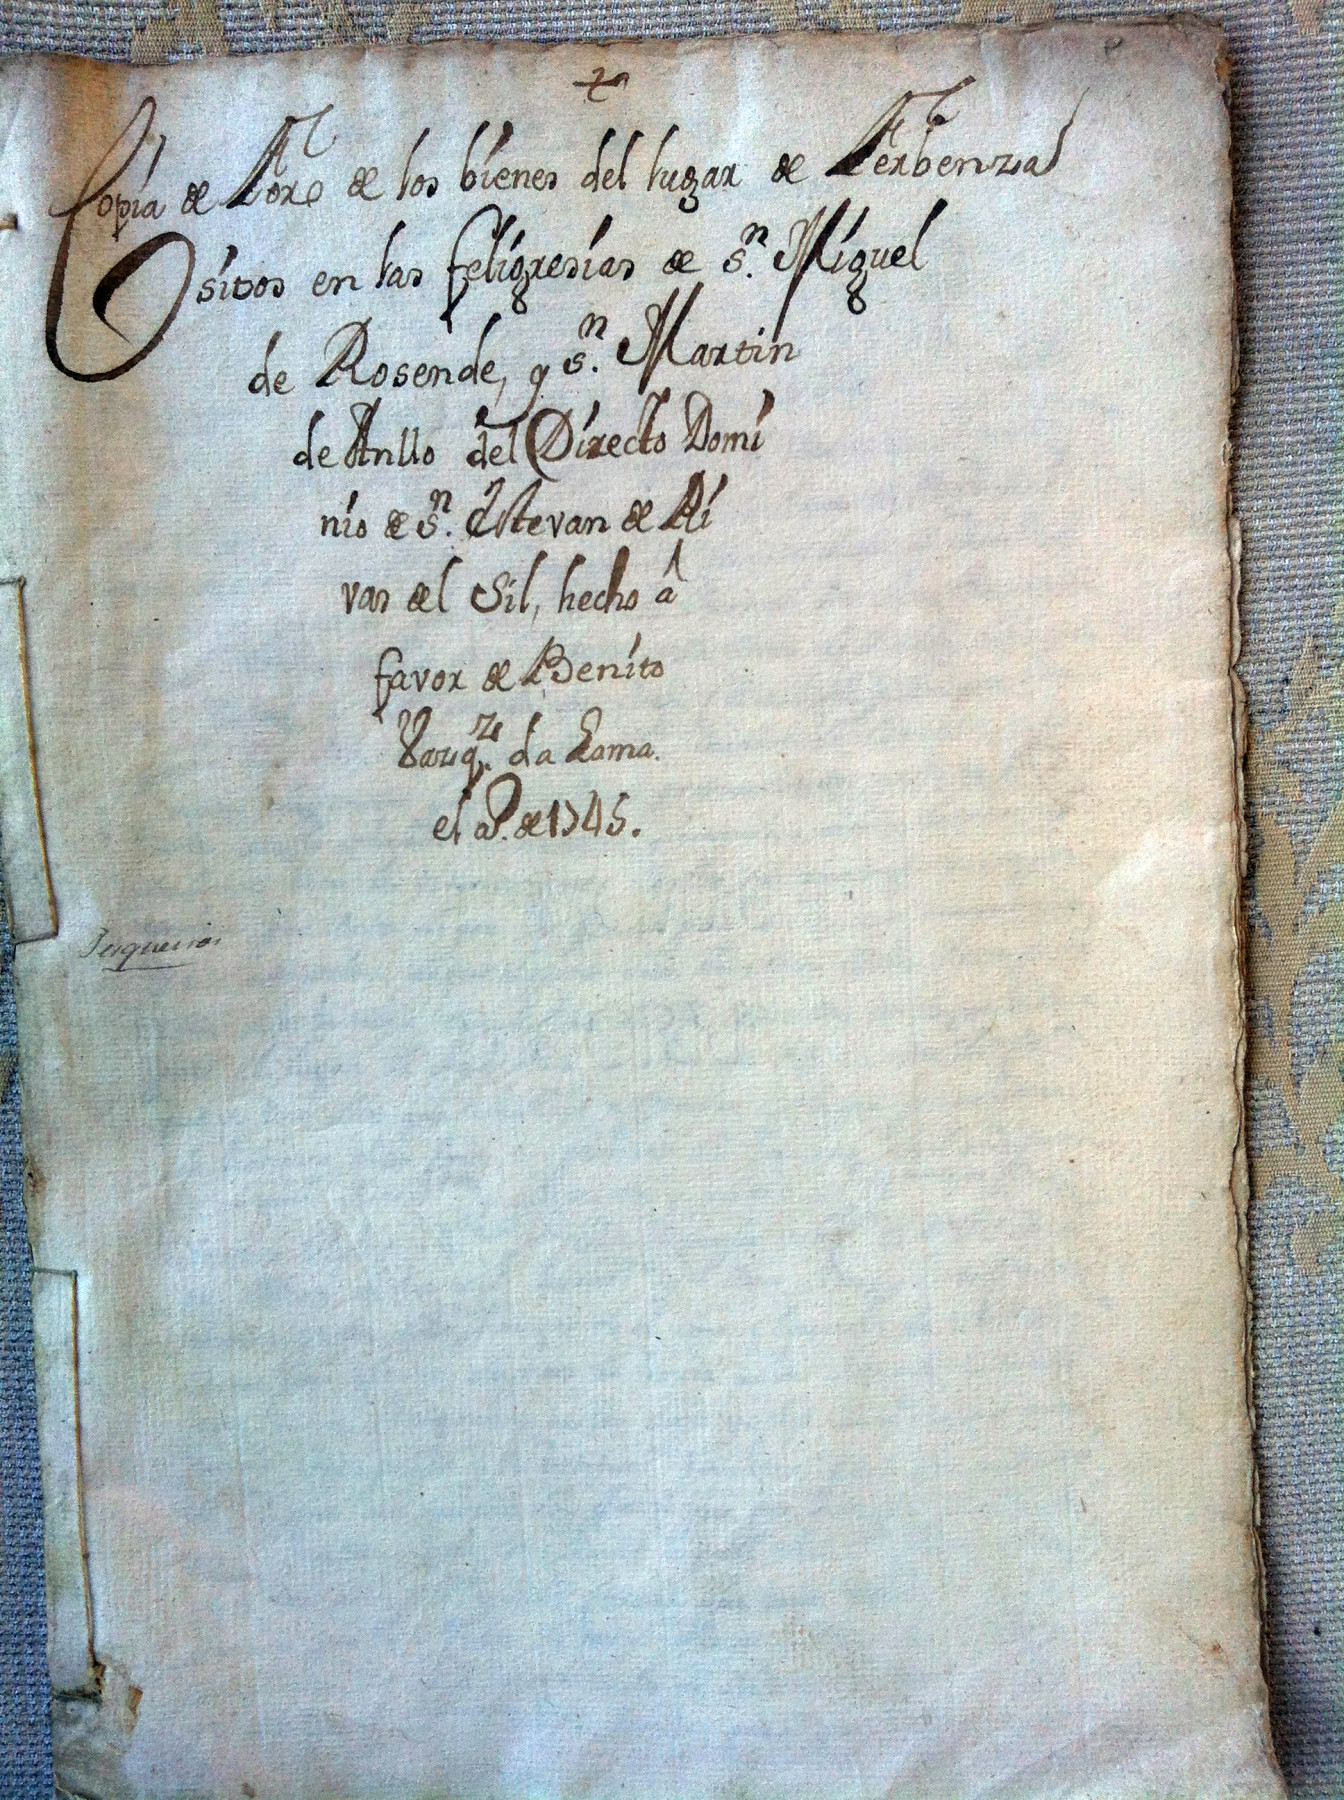 Copia de Foro de los bienes del lugar de Ferbenza
sitos en las feligresias de Sn. Miguel
de Rosende, y Sn. Martin
de Anllo del Directo Domi
nio de Sn. Estevan de Ri
vas del Sil, hecho â
favor de Benito
Vazqz. da Lama.
el aº. de 1745.